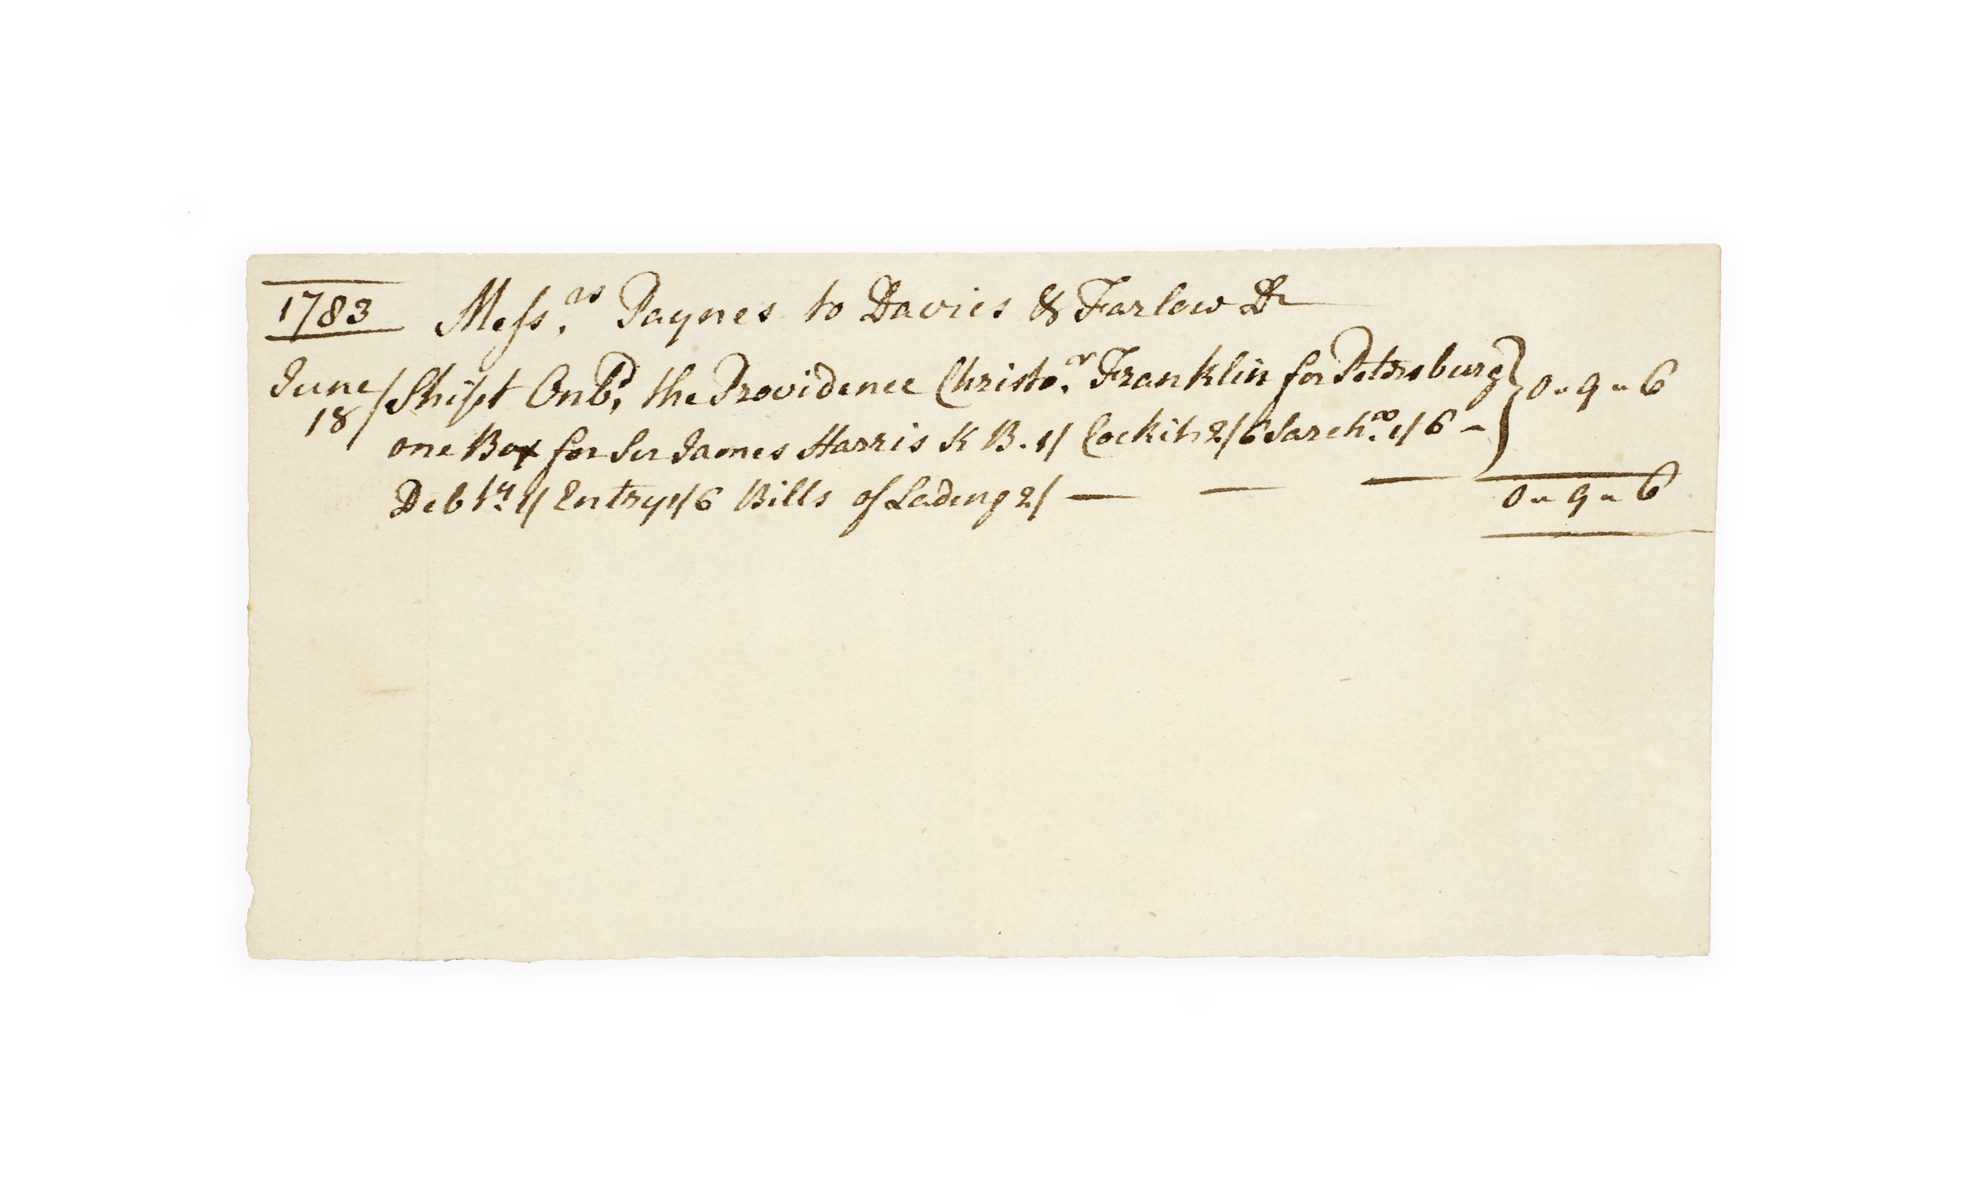 1783 Mess.rs Paynes to Davies & Farlow Dr
June 18 / Shipt Onb.d the Providence Christo.r Franklin for Petersburg } 0 „ 9 „ 6
one Box for Sir James Harris K B. 1/ Cockit 2/6 1/6 –
Deb 1/ Entry 1/6 Bills of Lading 2/ — — —
0 „ 9 „ 6